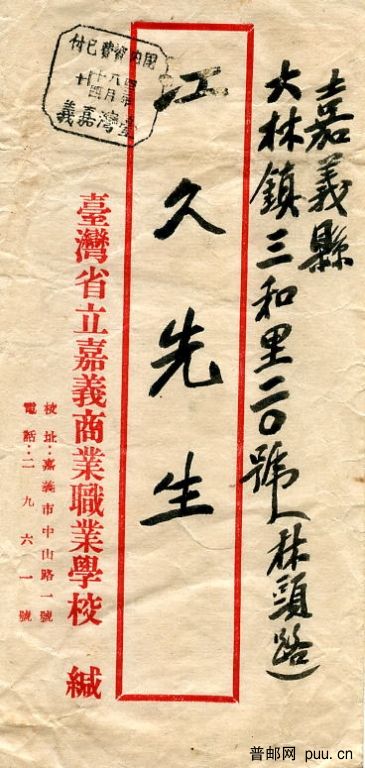 嘉義縣
大林鎮三和里二〇號（林頭路）
江久先生
臺灣省立嘉義商業職業學校 緘
校址：嘉義市中山路一號
電話：二九六一號
國內資費已付
臺灣嘉義
普邮网 puu.cn